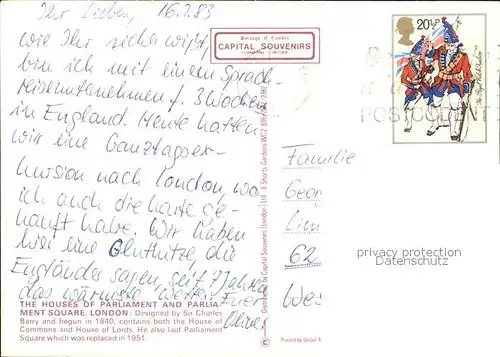 Ihr Lieben, 16.7.83
wie Ihr sicher wißt,
bin ich mit einem Sprach-
reiseunternehmen f. 3 Wochen
in England. Heute hatten
wir eine Ganztagsex-
kursion nach London, wo
ich auch die Karte ge-
kauft habe. Wir haben
hier eine Gluthitze, die
Engländer sagen, seit 7 Jahren
das wärmste Wetter. Euer
Oliver
THE HOUSES OF PARLIAMENT AND PARLIA-
MENT SQUARE, LONDON: Designed by Sir Charles
Barry and begun in 1840, contains both the House of
Commons and House of Lords. He also laid Parliament
Square which was replaced in 1951.
Borough of Camden
CAPITAL SOUVENIRS
(LONDON) LIMITED
Distributed by Capital Souvenirs (London) Ltd., 8 Shorts Gardens WC2
20½P
POSTCODE
Familie
Geor
62
privacy protection
Datenschutz
Printed by